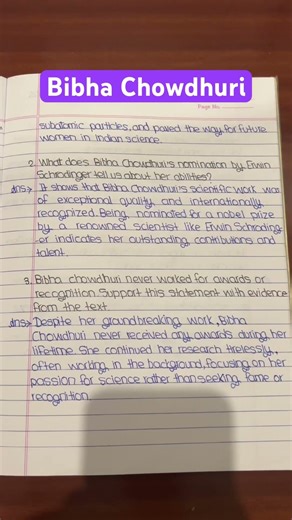 Bibha Chowdhuri
Page No.
subatomic particles, and paved the way for future
women in Indian science.
2. What does Bibha Chowdhuri's nomination by Erwin
Schrodinger tell us about her abilities?
Ans→ It shows that Bibha Chowdhuri's scientific work was
of exceptional quality and internationally
recognized. Being nominated for a nobel prize
by a renowned scientist like Erwin Schroding
-er indicates her outstanding contributions and
talent.
3. Bibha chowdhuri never worked for awards or
recognition. Support this statement with evidence
from the text.
Ans→ Despite her groundbreaking work, Bibha
Chowdhuri never received any awards during her
lifetime. She continued her research tirelessly,
often working in the background, focusing on her
passion for science rather than seeking fame or
recognition.